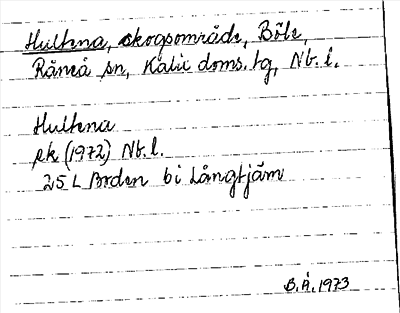 Hultena, skogsområde, Böle,
Råneå sn, Kalix doms. tg, Nb. l.
Hultena
ek (1972) Nb. l.
25 L Boden bi Långtjärn
B. Å. 1973